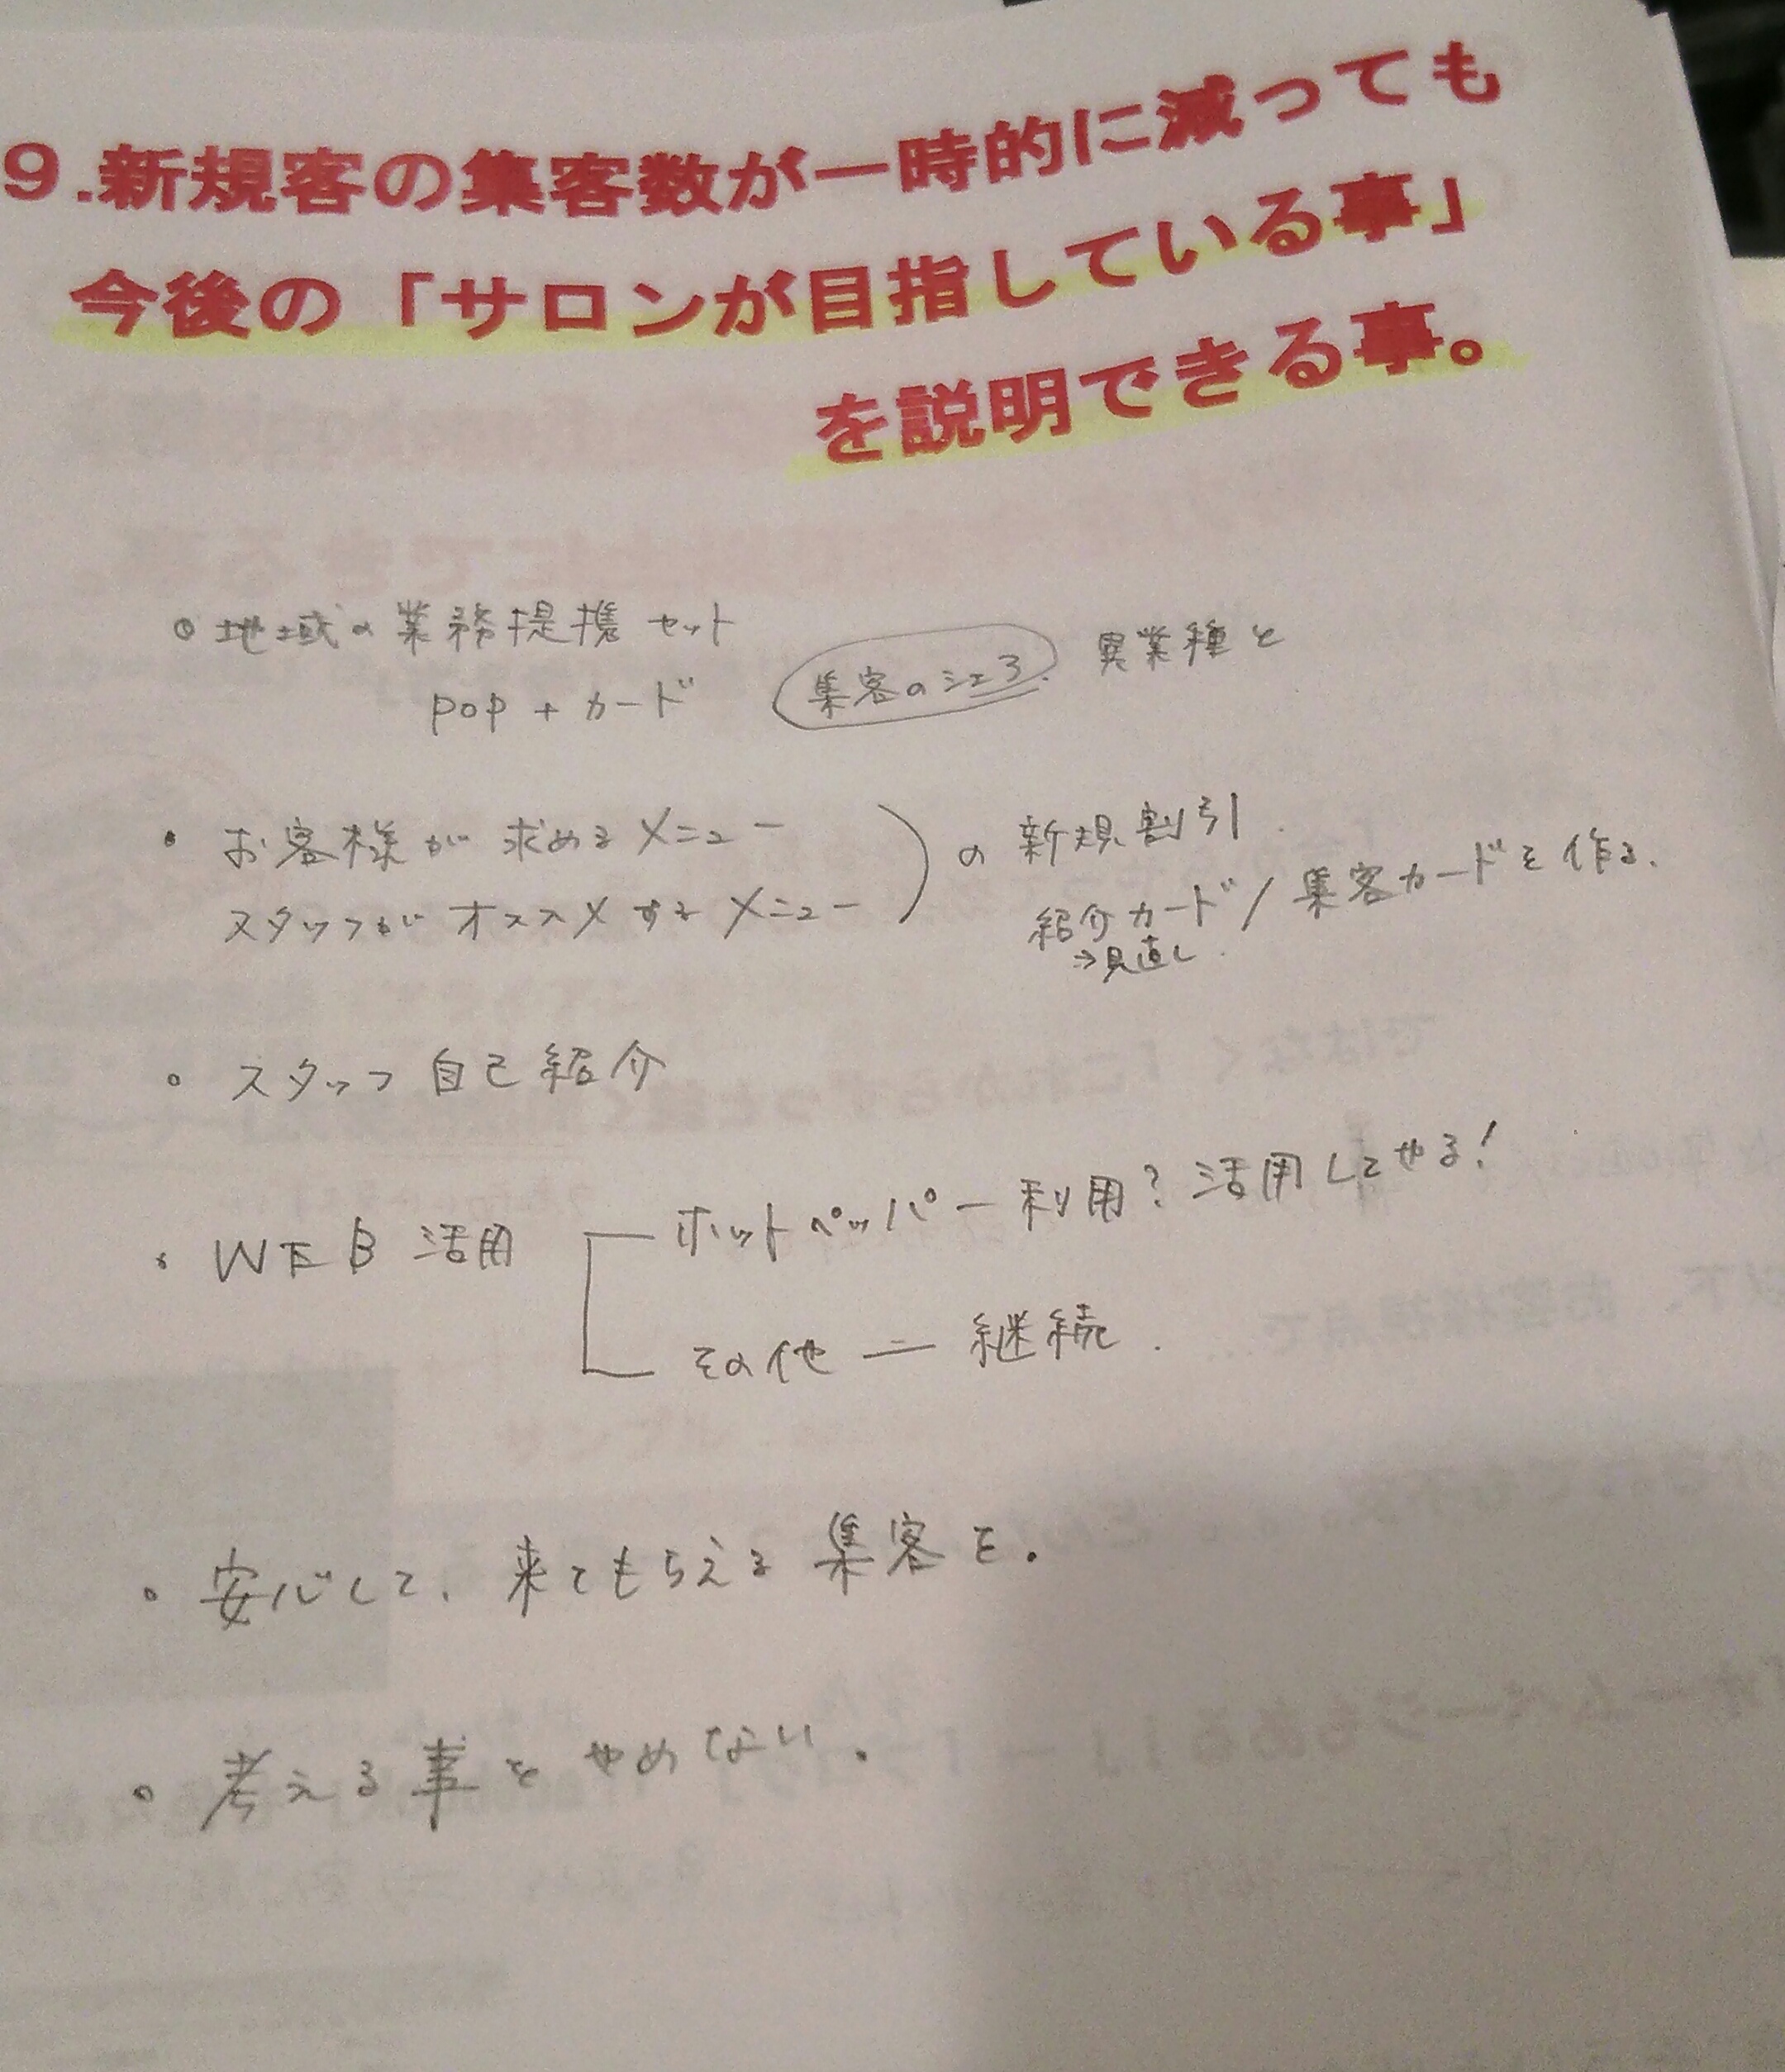 9.新規客の集客数が一時的に減っても
今後の「サロンが目指している事」
を説明できる事。
地域の業務提携セット
POP + カード 集客のシェア 異業種と
・お客様が求めるメニュー の 新規割引.
スタッフがオススメするメニュー 紹介カード/集客カードを作る.
→見直し.
。スタッフ自己紹介
・WEB活用 ホットペッパー利用?活用してやる!
その他 ー 継続.
。安心して、来てもらえる集客を.
。考える事をやめない.